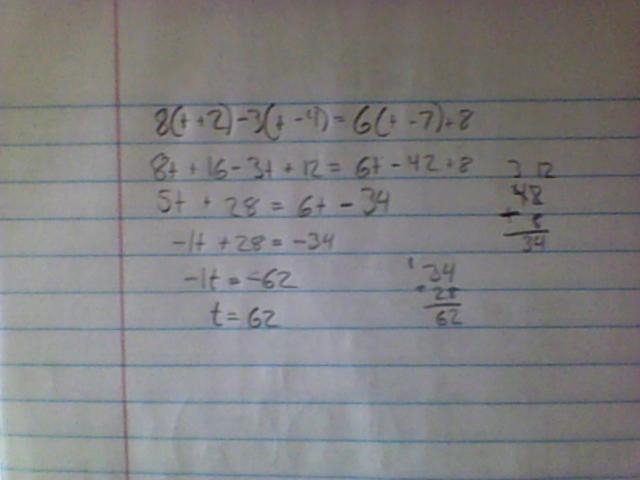 8(t+2)-3(t-4)=6(t-7)+8
8t+16-3t+12=6t-42+8
5t+28=6t-34
-1t+28=-34
-1t=-62
t=62
3 12
48
+ 8
34
1
34
+28
62